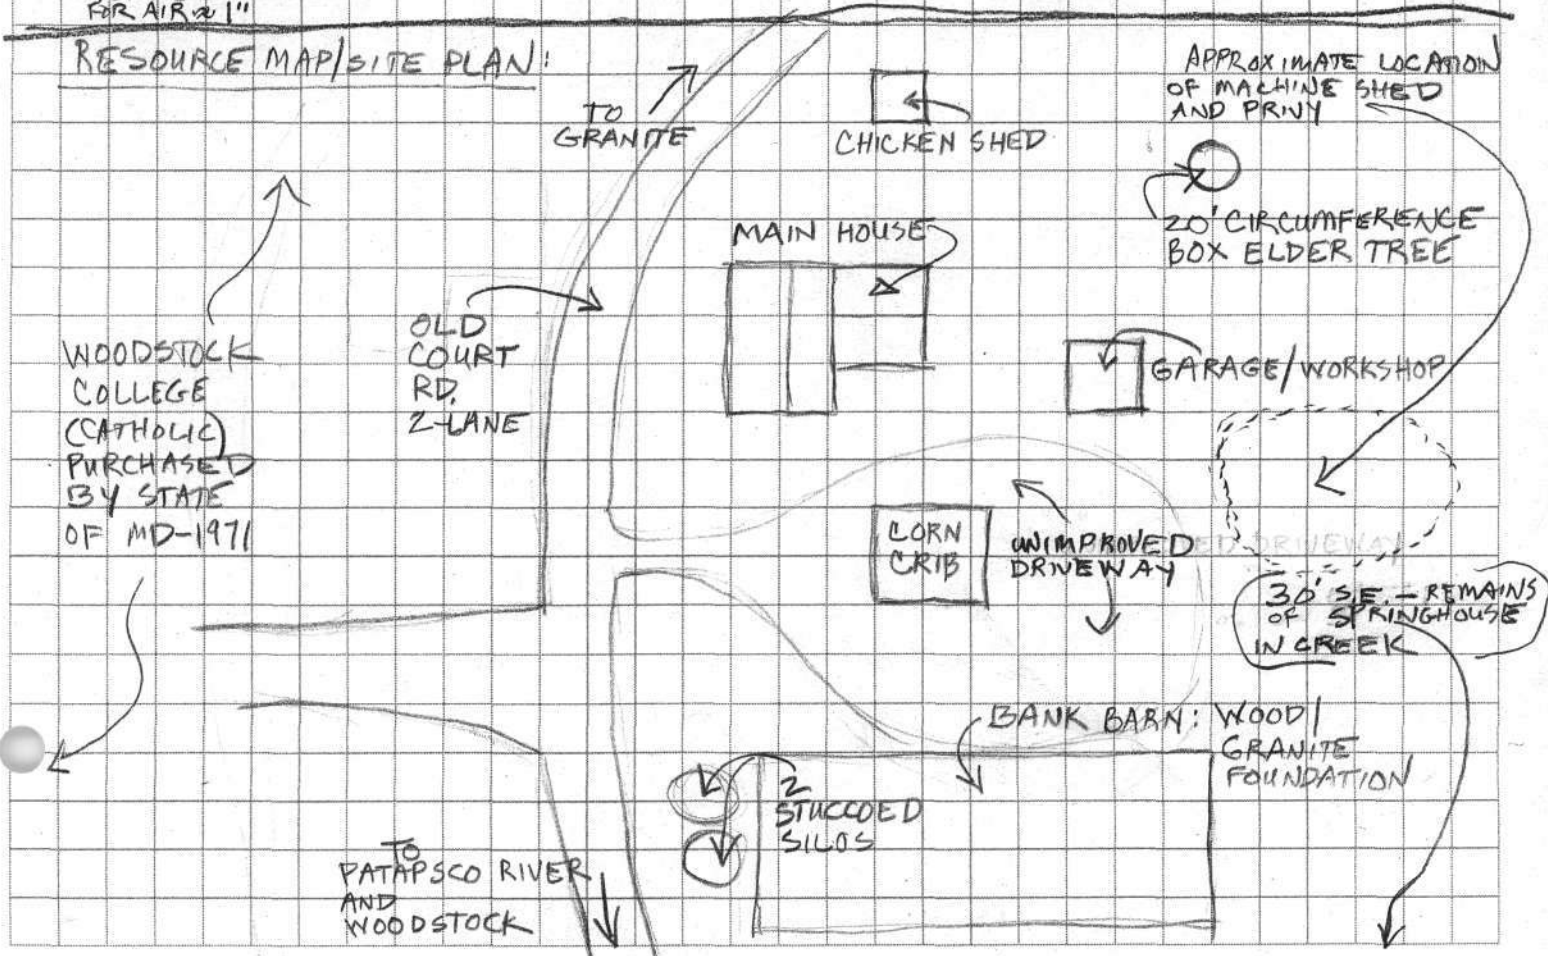 FOR AIR ≈ 1"
RESOURCE MAP/SITE PLAN:
TO
GRANITE
CHICKEN SHED
APPROXIMATE LOCATION
OF MACHINE SHED
AND PRIVY
20' CIRCUMFERENCE
BOX ELDER TREE
MAIN HOUSE
OLD
COURT
RD.
2-LANE
WOODSTOCK
COLLEGE
(CATHOLIC)
PURCHASED
BY STATE
OF MD-1971
GARAGE/WORKSHOP
CORN
CRIB
UNIMPROVED
DRIVEWAY
DRIVEWAY
30' S.E. - REMAINS
OF SPRINGHOUSE
IN CREEK
BANK BARN: WOOD/
GRANITE
FOUNDATION
2
STUCCOED
SILOS
TO
PATAPSCO RIVER
AND
WOODSTOCK